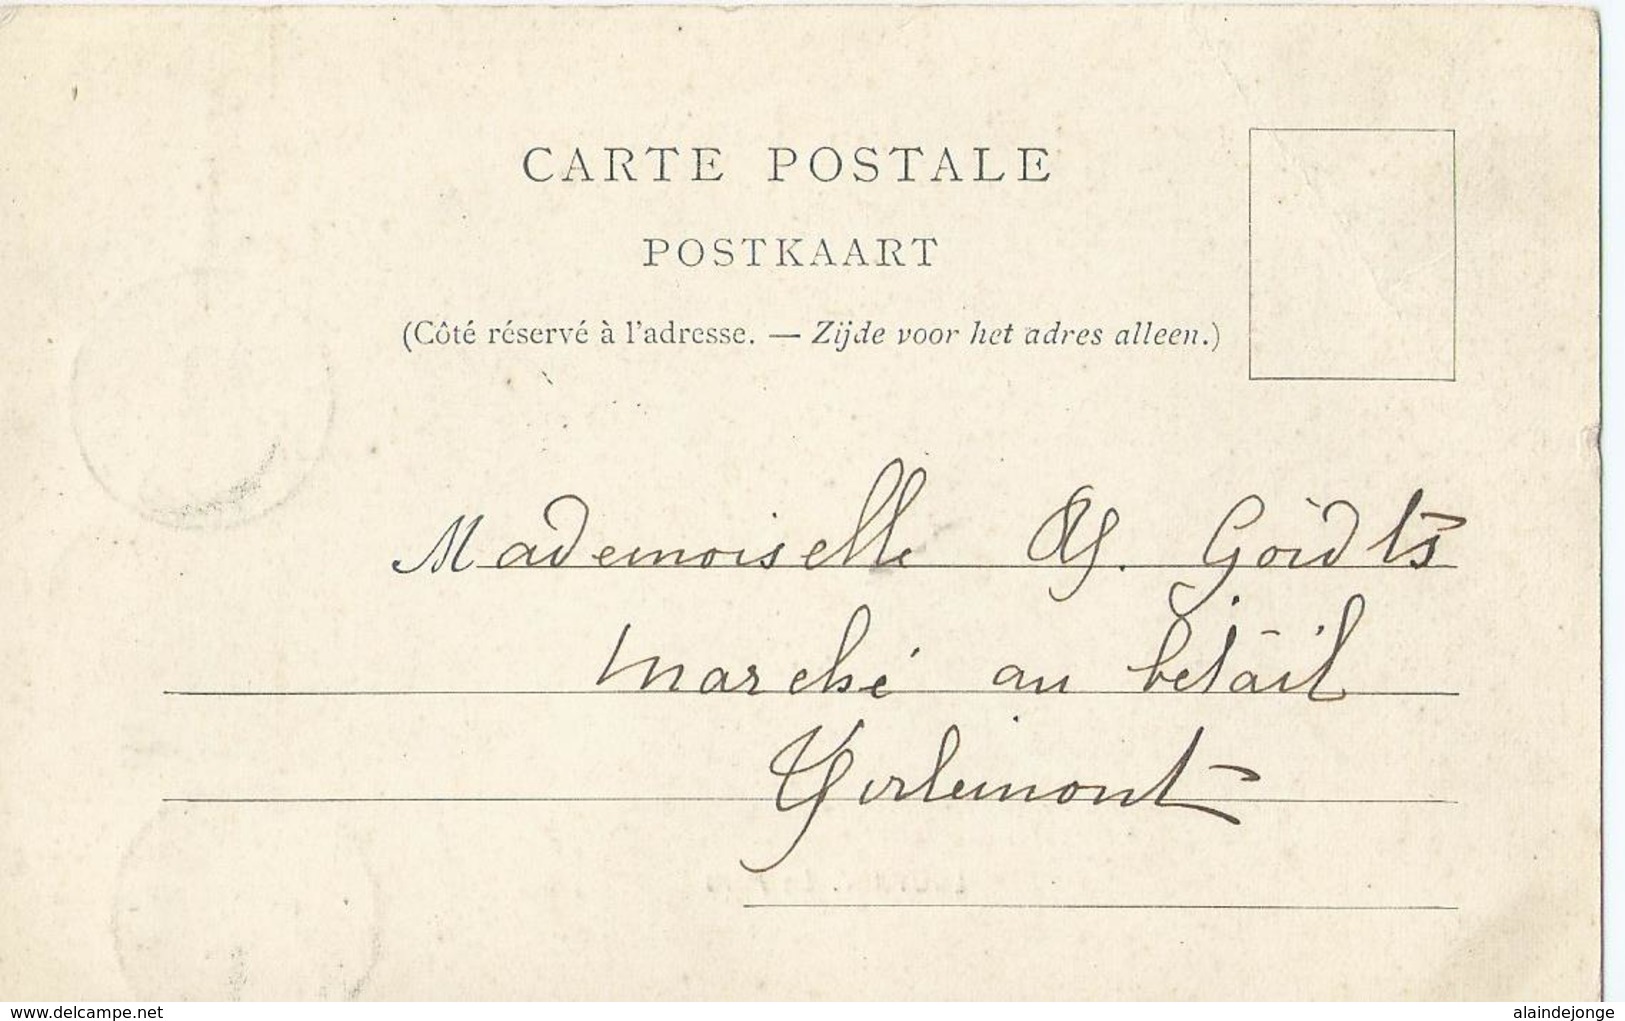 CARTE POSTALE
POSTKAART
(Côté réservé à l'adresse. — Zijde voor het adres alleen.)
Mademoiselle Goidts
marché au bétail
Tirlemont
www.delcampe.net
alaindejonge